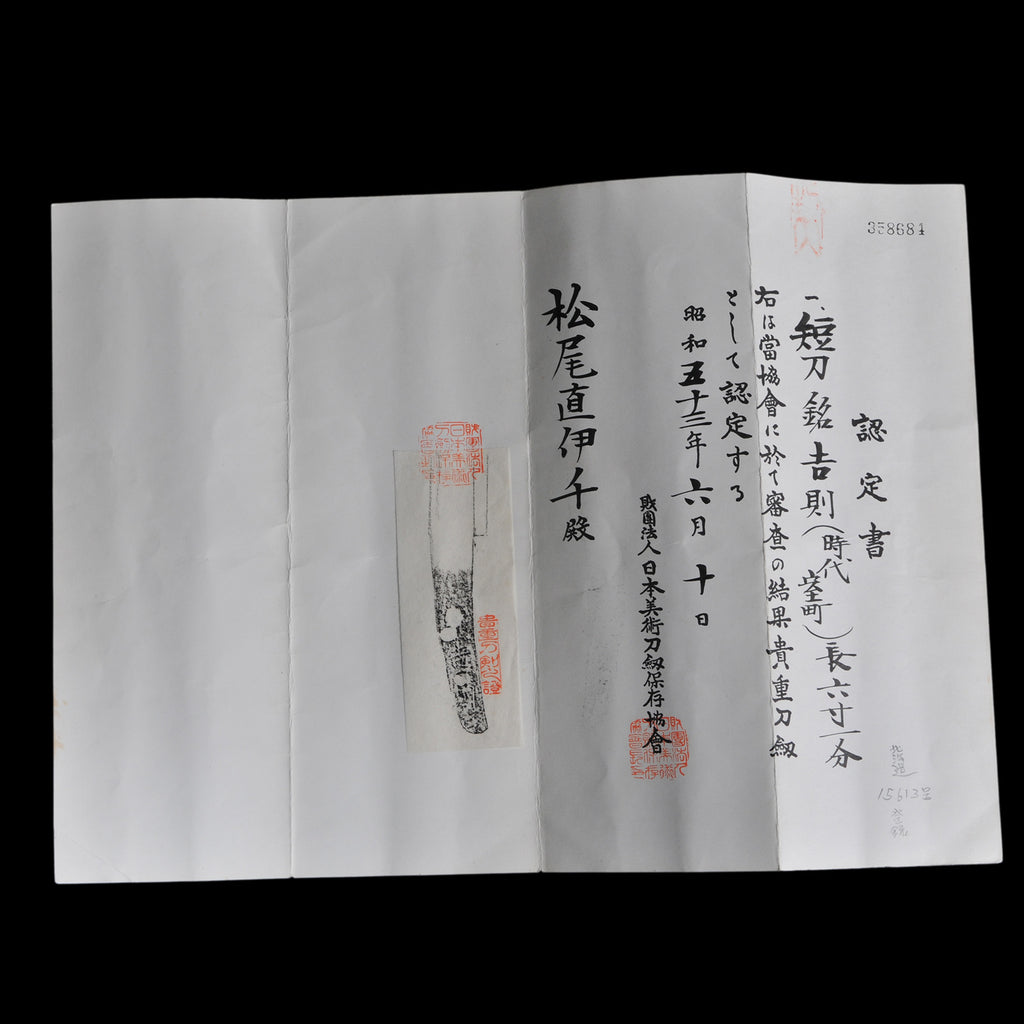 358684
認定書
一、短刀 銘 吉則(時代室町)長六寸一分
右は當協會に於て審査の結果貴重刀劔
として認定する
昭和五十三年六月十日
財團法人日本美術刀劔保存協會
松尾直伊千殿
貴重刀剣之證
15613号
登録